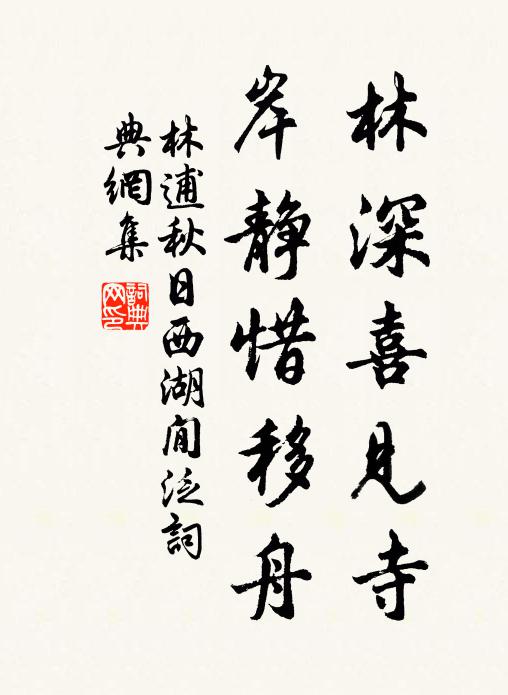 林深喜見寺
岸靜惜移舟
林逋秋日西湖閒泛詞
典網集
詞典網印